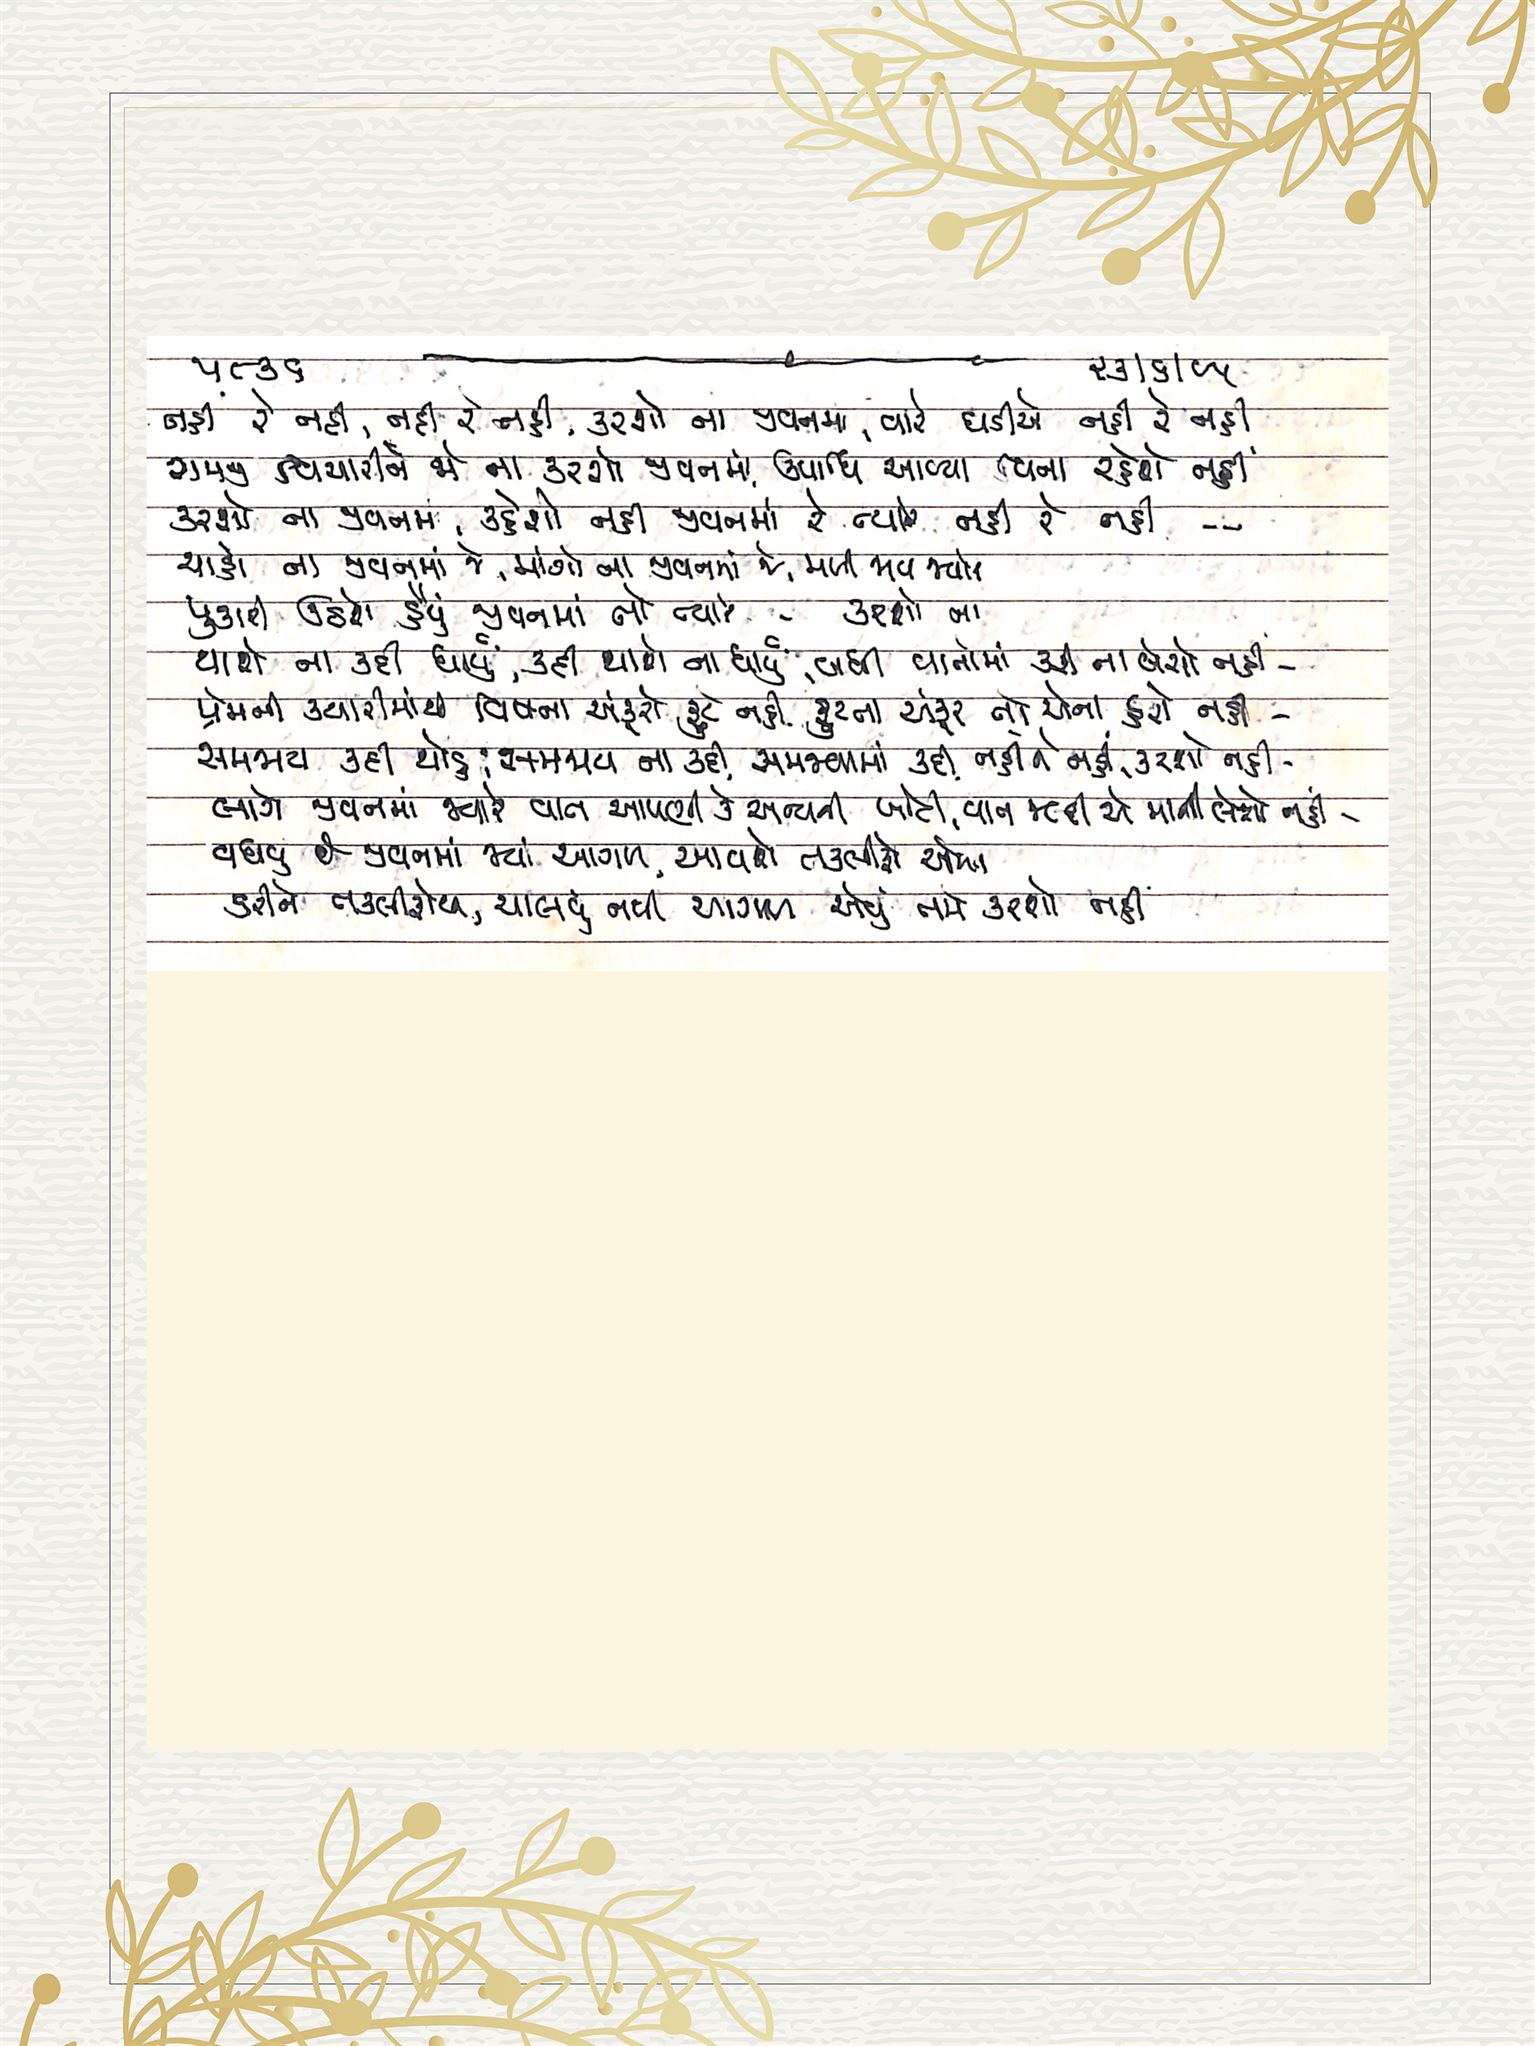 ૫૮૩૬ ૨૩/૬/૯૫
નહી રે નહી, નહી રે નહી, કરશો ના જીવનમાં, વારે ઘડીએ નહી રે નહી
સમજી વિચારીને જો ના કરશો જીવનમાં, ઉપાધિ આવ્યા વિના રહેશે નહીં
કરશો ના જીવનમાં, કહેશો નહી જીવનમાં રે ત્યારે નહી રે નહી --
ચાહો ના જીવનમાં જે, માંગો ના જીવનમાં જે, મળી જાય જ્યારે
પુકારી ઉઠશે હૈયું જીવનમાં તો ત્યારે - કરશો ના
થાશે ના કદી ધાર્યું, કદી થાશે ના ધાર્યું, બધી વાતોમાં કરી ના બેશો નહી -
પ્રેમની ક્યારીમાંથી વિષના અંકૂરો ફુટે નહી, ફુટતા અંકૂર તો એના હશે નહી -
સમજાય કદી થોડુ, સમજાય ના કદી, સમજવામાં કદી નહીને નહીં, કરશો નહી -
લાગે જીવનમાં જ્યારે વાત આપણી કે અન્યની ખોટી, વાત જલદી એ માની લેશો નહીં -
વધવુ છે જીવનમાં જ્યાં આગળ, આવશે તકલીફો એમાં
ડરીને તકલીફોથી, ચાલવું નથી આગળ એવું તમે કરશો નહીં